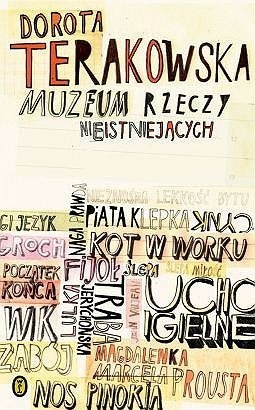 DOROTA
TERAKOWSKA
MUZEUM RZECZY
NIEISTNIEJĄCYCH
NIEZNOŚNA LEKKOŚĆ BYTU
NAGA PRAWDA
PIĄTA KLEPKA
CYNK
GI JĘZYK
GROCH
KOT W WORKU
POCZĄTEK
KOŃCA
FIJOŁ
ŚLEPA
ŚLEPA MIŁOŚĆ
LULKA
TRĄBA
JERYCHOŃSKA
UCHO
IGIELNE
WIK
ZABÓJ
MAGDALENKA
MARCELA PROUSTA
NOS PINOKIA